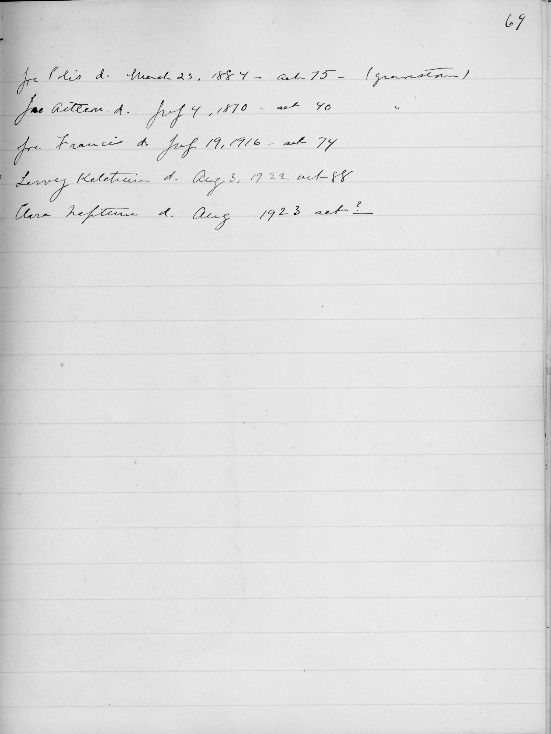 69
Joe Polis d. March 23, 1884 - aet 75 - (gravestone)
Joe Aitteon d. July 4, 1870 - aet 40 "
Joe Francis d. July 19, 1916 - aet 74
d. Aug 3, 1922 aet 88
Clara Neptune d. Aug 1923 aet ?